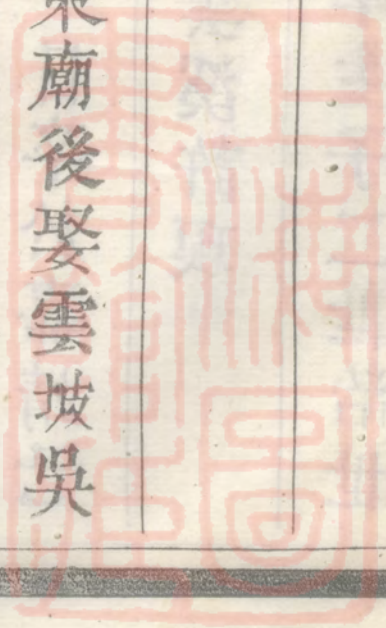 廟後娶雲坡吳
上海圖
書館藏